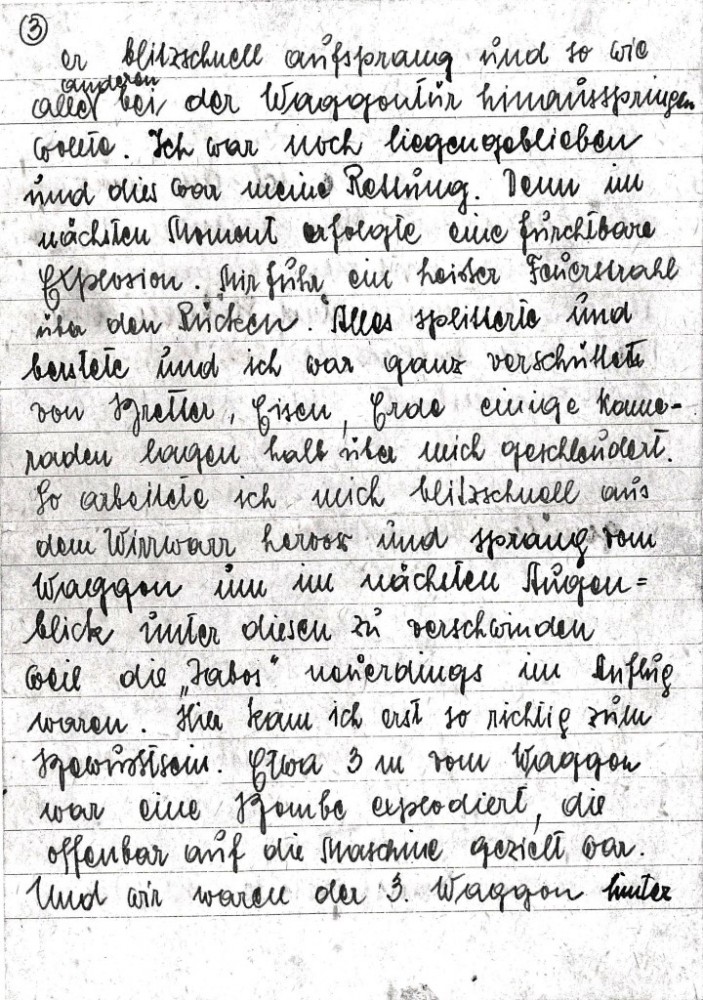 ③
er blitzschnell aufsprang und so wie
anderen
alle bei der Waggontür hinausspringen
wollte. Ich war noch liegengeblieben
und dies war meine Rettung. Denn im
nächsten Moment erfolgte eine furchtbare
Explosion. Mir fuhr ein heisser Feuerstrahl
über den Rücken. Alles splitterte und
berstete und ich war ganz verschüttet
von Bretter, Eisen, Erde einige Kame-
raden lagen halb über mich geschleudert.
So arbeitete ich mich blitzschnell aus
dem Wirrwarr heraus und sprang vom
Waggon um im nächsten Augen=
blick unter diesen zu verschwinden
weil die „Jabos" neuerdings im Anflug
waren. Hier kam ich erst so richtig zum
Bewußtsein. Etwa 3 m vom Waggon
war eine Bombe explodiert, die
offenbar auf die Maschine gezielt war.
Und wir waren der 3. Waggon hinter